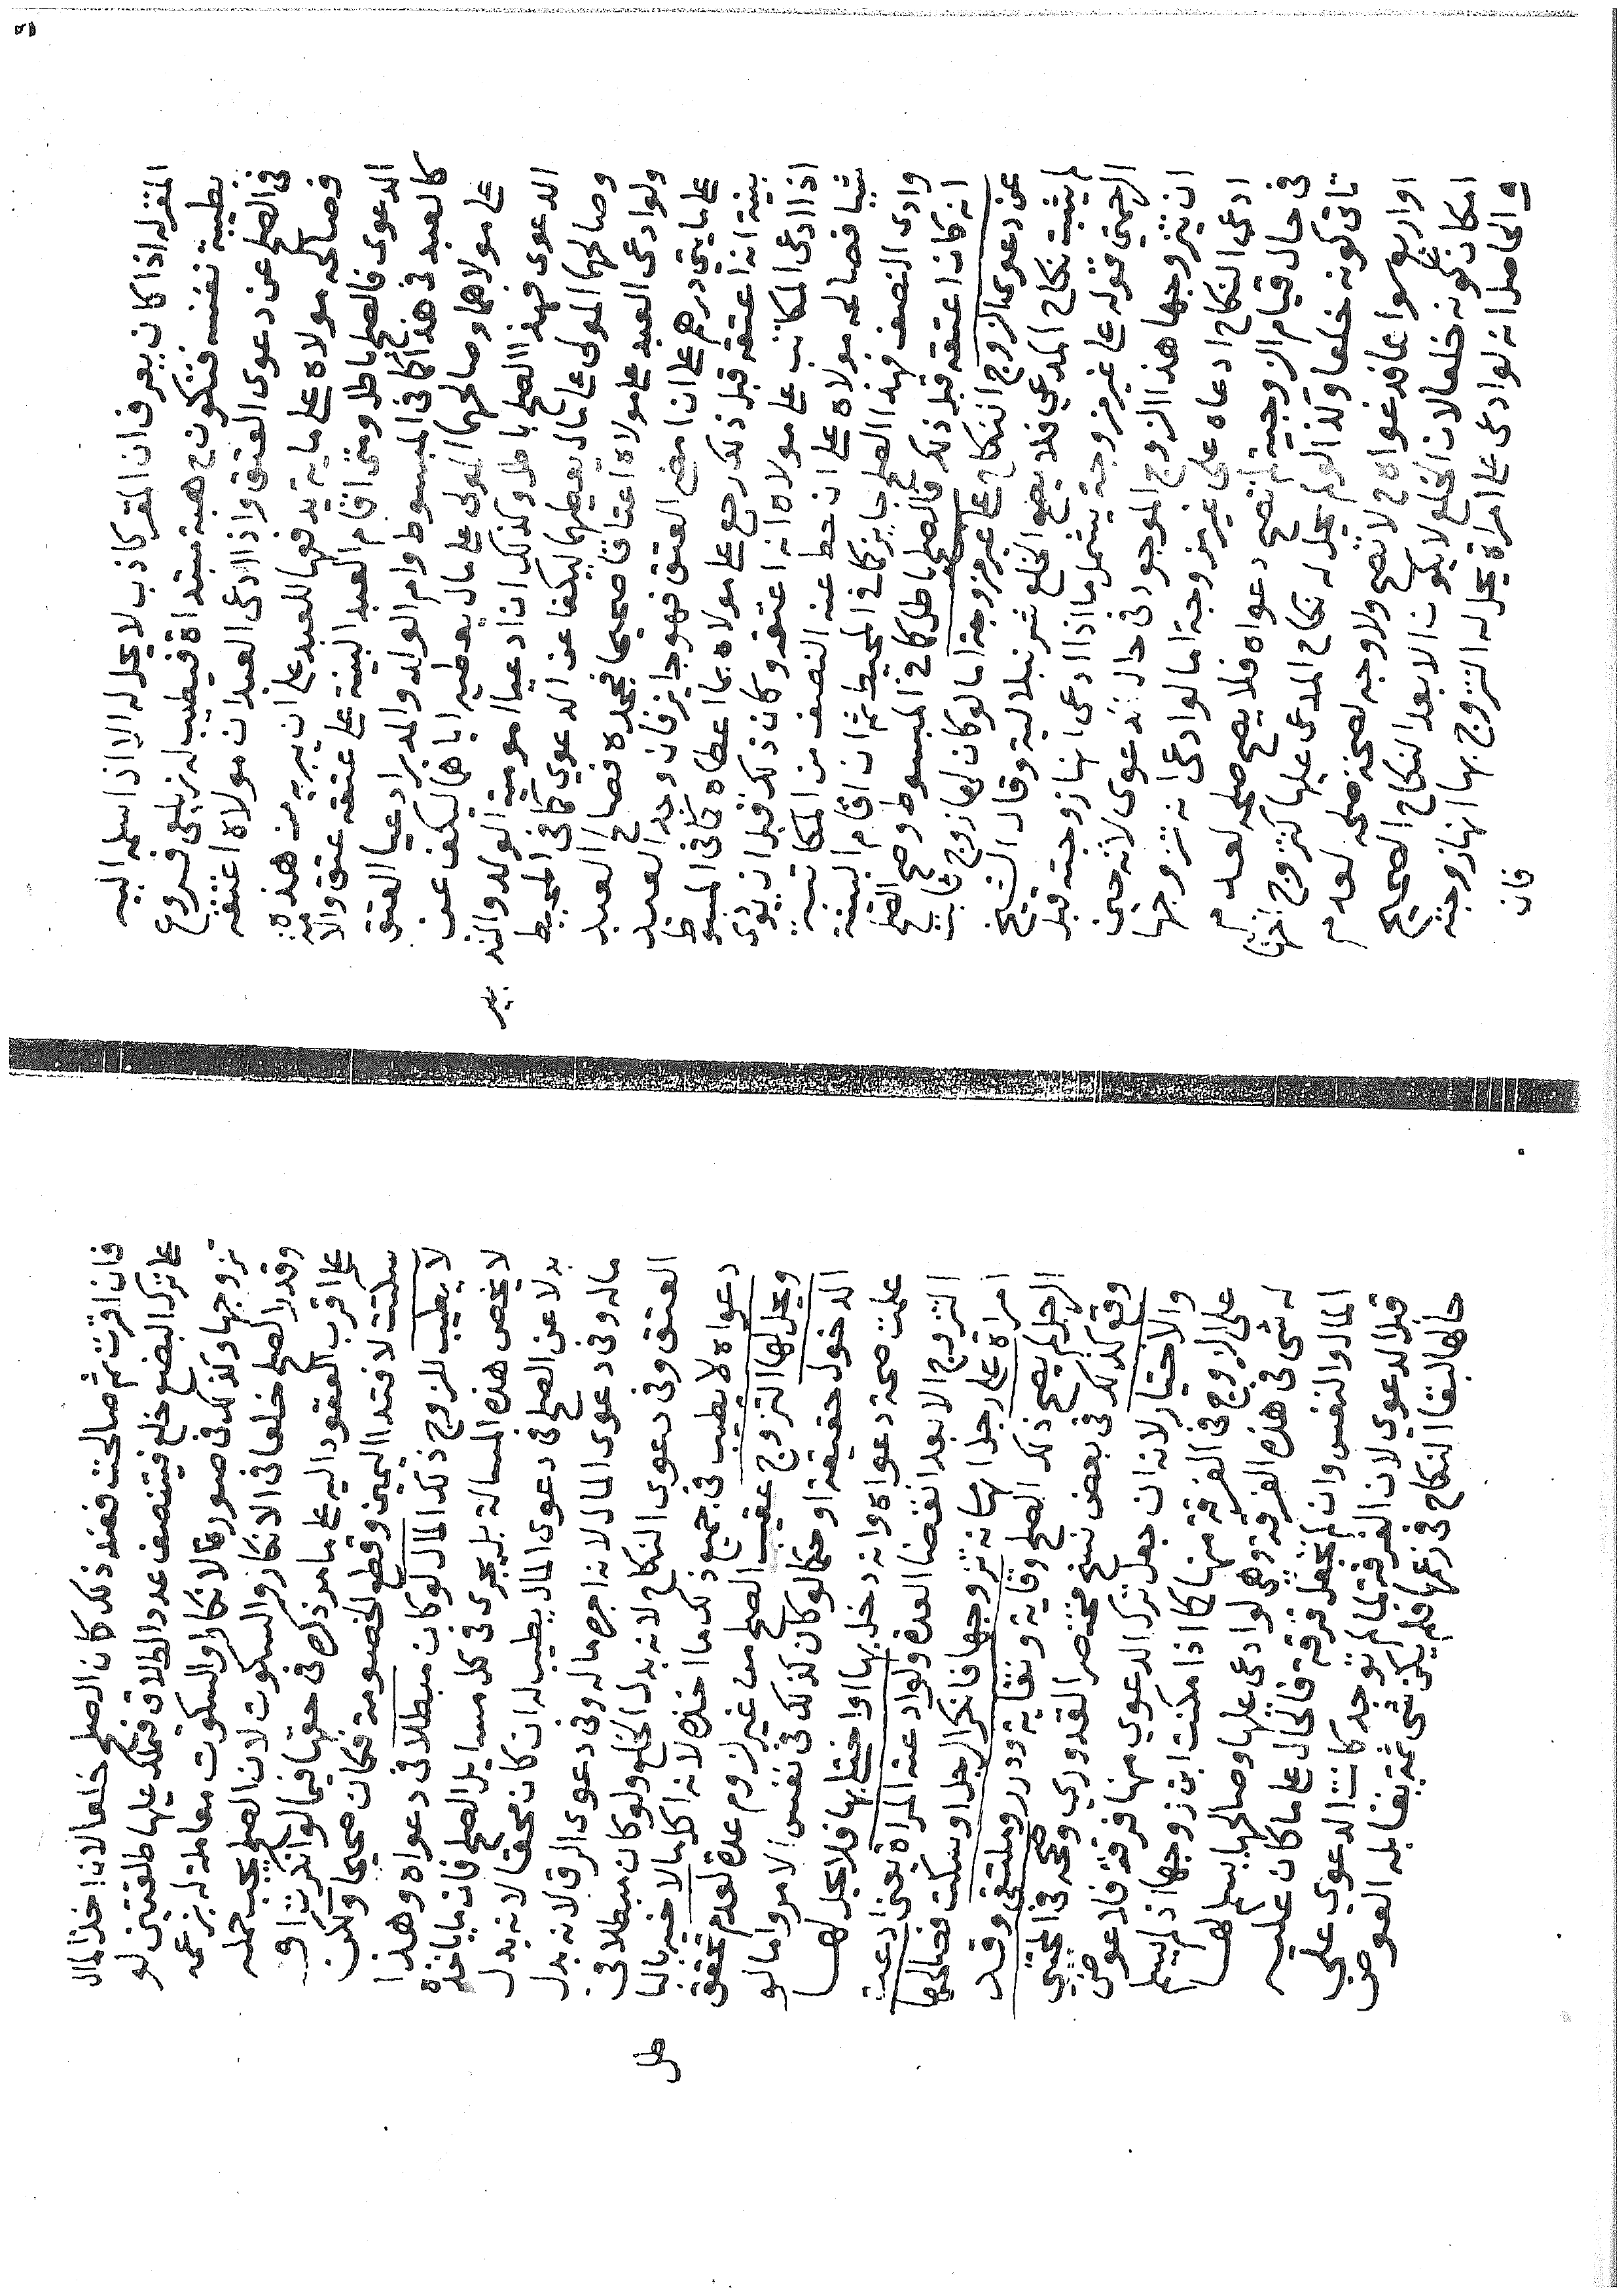 المقر له اذا كان يعرف ان المقر كاذب لا يحل له الا اذا سلمه اليه
بطيبة نفسه فتكون ح هبة مبتداة فيطيب له زيلعى فروع
فى الصلح عن دعوى العتق واذا ادعى العبد ان مولاه اعتقه
فصالحه مولاه على ماية يدفعها للعبد على ان يبريه من هذه
الدعوى فالصلح باطل ومتى اقام العبد البينة على عتقه عتق والامة
كالعبد فى هذا كما فى المبسوط وام الولد والمدبر ادعيا العتق
على مولاهما وصالحهما المولى على مال يعطيه اياهما ليكف عن
الدعوى فهذا الصلح باطل وكذلك ان ادعيا امومية الولد والتد
بير
وصالحهما المولى على مال يعطيهما ليكفا عن الدعوي كما فى المحيط
ولو ادعى العبد على مولاه اعتاقا صحيحا فجحده فصالح العبد
على مايتى درهم على ان امضى العتق فهو جايز فان وجد العبد
بينة انه اعتقه قبل ذلك رجع على مولاه بما اعطاه كما فى المبسوط
اذا ادعى المكاتب على مولاه انه اعتقه وكان ذلك قبل ان يؤدى
شيا فصالحه مولاه على ان حط عنه النصف من المكاتبة
وادى النصف فهذا الصلح جايز كما فى المحيط ثم ان اقام البينة
انه كان اعتقه قبل ذلك فالصلح باطل كما فى المبسوط وصح الصلح
عن دعوى الزوج النكاح على غير مزوجة اما لو كان لها زوج ثابت
لم يثبت نكاح المدعي فلا يصح الخلع شرنبلالية وقال الشيخ
الرحمتي قوله على غير مزوجة يشمل ما اذا ادعى انها زوجته قبل
ان يتزوجها هذا الزوج الموجود فى حال الدعوى لانه حين
ادعى النكاح ادعاه على غير مزوجة اما لو ادعى انه تزوجها
فى حال قيام الزوجية لم تصح دعواه فلا يصح صلحه لعدم
تاتى كونه خلعا وكذا لو لم يحل له نكاح المدعى عليها كتزوج اختها
او اربع سواها فدعواه ح لا تصح ولا وجه لصحة صلحه لعدم
امكان كونه خلعا لان الخلع لا يكون الا بعد النكاح الصحيح
والحاصل انه لو ادعى على امراة يحل له التزوج بها انها زوجته
فان
فان اقرت ثم صالحت فعند ذلك كان الصلح خلعا لانه اخذ المال
على ترك البضع خلع فيتنصف عدد الطلاق فيملك عليها طلقتين لو
تزوجها وكذلك فى صورة الانكار والسكوت معاملة له بزعمه
وقدر الصلح خلعا فى الانكار والسكوت لان الصلح يجب حمله
على اقرب العقود اليه على ما مر ذكره فى حقها فيما لو انكرت او
سكتت لافتدا اليمين وقطع الخصومة فكان صحيحا ولكن
لا يطيب للزوج ذلك المال لو كان مبطلا فى دعواه وهذا
لا يخص هذه المسالة بل يجرى فى كل مسايل الصلح فان ما ياخذه
بدلا عن الصلح فى دعوى المال يطيب له ان كان محقا لانه بدل
ماله وفى دعوى المال لانه اجر ماله وفى دعوى الرق لانه بدل
العتق وفى دعوى النكاح لانه بدل الخلع ولو كان مبطلا فى
دعواه لا يطيب فى جميع ذلك ما اخذه لانه اكل مال اخيه بالبا
طل
ويحل لها التزوج عقيب الصلح من غير لزوم عدة لعدم تحقق
الدخول حقيقة او حكما لو كان كذلك فى نفس الامر واما لو
علمت صحة دعواه وانه دخل بها او اختلى بها فلا يحل لها
التزوج الا بعد انقضا العدة ولو ادعته المراة يعنى ادعت
امراة على رجل انه تزوجها فانكر الرجل او سكت فصالحها
الرجل لم يصح ذلك الصلح وقاية ونقاية ودرر وملتقى وقد
وقع كذلك فى بعض نسخ مختصر القدوري وصححه فى المجتبى
والاختيار لانه ان جعل ترك الدعوي منها فرقة فلا عوض
على الزوج فى الفرقة منها كما اذا مكنت ابن زوجها اذ لم يسلم
له شى فى هذه الفرقة وهى لو ادعى عليها وصالحها بابل لها
المال والنفس وان لم تجعل فرقة فالحال على ما كان عليه
قبل الدعوي لان الفرقة لما لم توجد كانت الدعوي على
حالها لبقا النكاح فى زعمها فلم يكن شى ثمة يقابله العوض